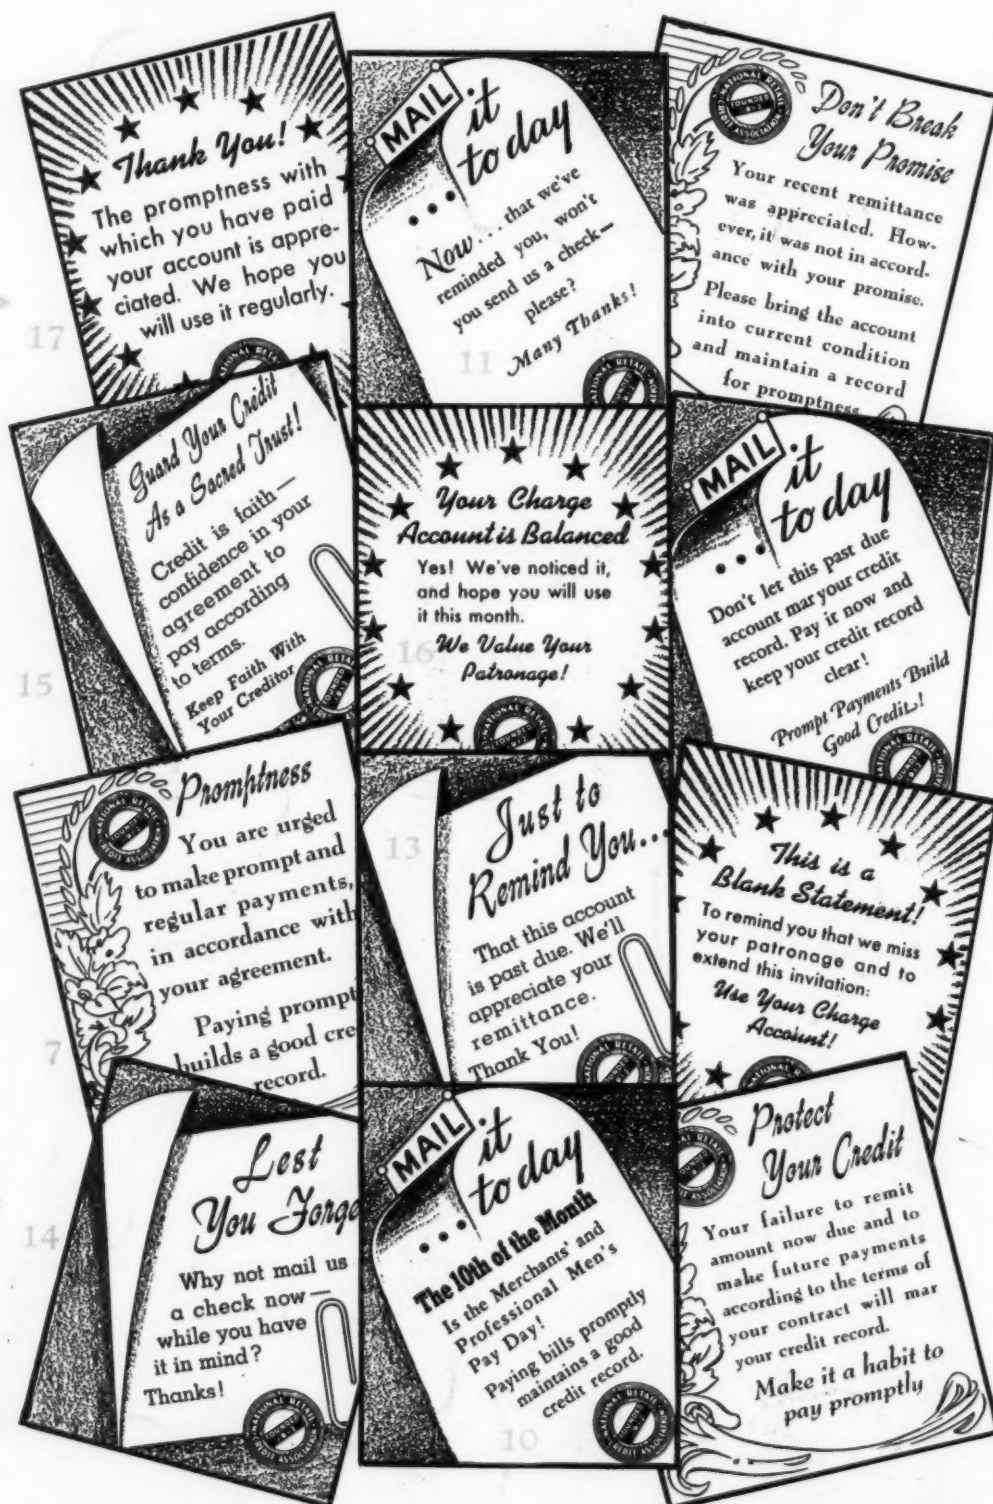 Thank You!
The promptness with
which you have paid
your account is appre-
ciated. We hope you
will use it regularly.
NATIONAL RETAIL
17
MAIL
it
to day
...
Now... that we've
reminded you, won't
you send us a check—
please?
Many Thanks!
11
NATIONAL RETAIL
CREDIT ASSOCIATION
FOUNDED
Don't Break
Your Promise
Your recent remittance
was appreciated. How-
ever, it was not in accord-
ance with your promise.
Please bring the account
into current condition
and maintain a record
for promptness
Guard Your Credit
As a Sacred Trust!
Credit is faith—
confidence in your
agreement to
pay according
to terms.
Keep Faith With
Your Creditor
15
Your Charge
Account is Balanced
Yes! We've noticed it,
and hope you will use
it this month.
We Value Your
Patronage!
NATIONAL RETAIL
16
MAIL
it
to day
...
Don't let this past due
account mar your credit
record. Pay it now and
keep your credit record
clear!
Prompt Payments Build
Good Credit!
NATIONAL RETAIL
CREDIT ASSOCIATION
FOUNDED
Promptness
You are urged
to make prompt and
regular payments,
in accordance with
your agreement.
Paying prompt
builds a good cre
record.
7
Just to
Remind You...
That this account
is past due. We'll
appreciate your
remittance.
Thank You!
13
This is a
Blank Statement!
To remind you that we miss
your patronage and to
extend this invitation:
Use Your Charge
Account!
Lest
You Forge
Why not mail us
a check now—
while you have
it in mind?
Thanks!
NATIONAL RETAIL
CREDIT ASSOCIATION
FOUNDED
14
MAIL
it
to day
...
The 10th of the Month
Is the Merchants' and
Professional Men's
Pay Day!
Paying bills promptly
maintains a good
credit record.
NATIONAL RETAIL
CREDIT ASSOCIATION
FOUNDED
10
Protect
Your Credit
Your failure to remit
amount now due and to
make future payments
according to the terms of
your contract will mar
your credit record.
Make it a habit to
pay promptly